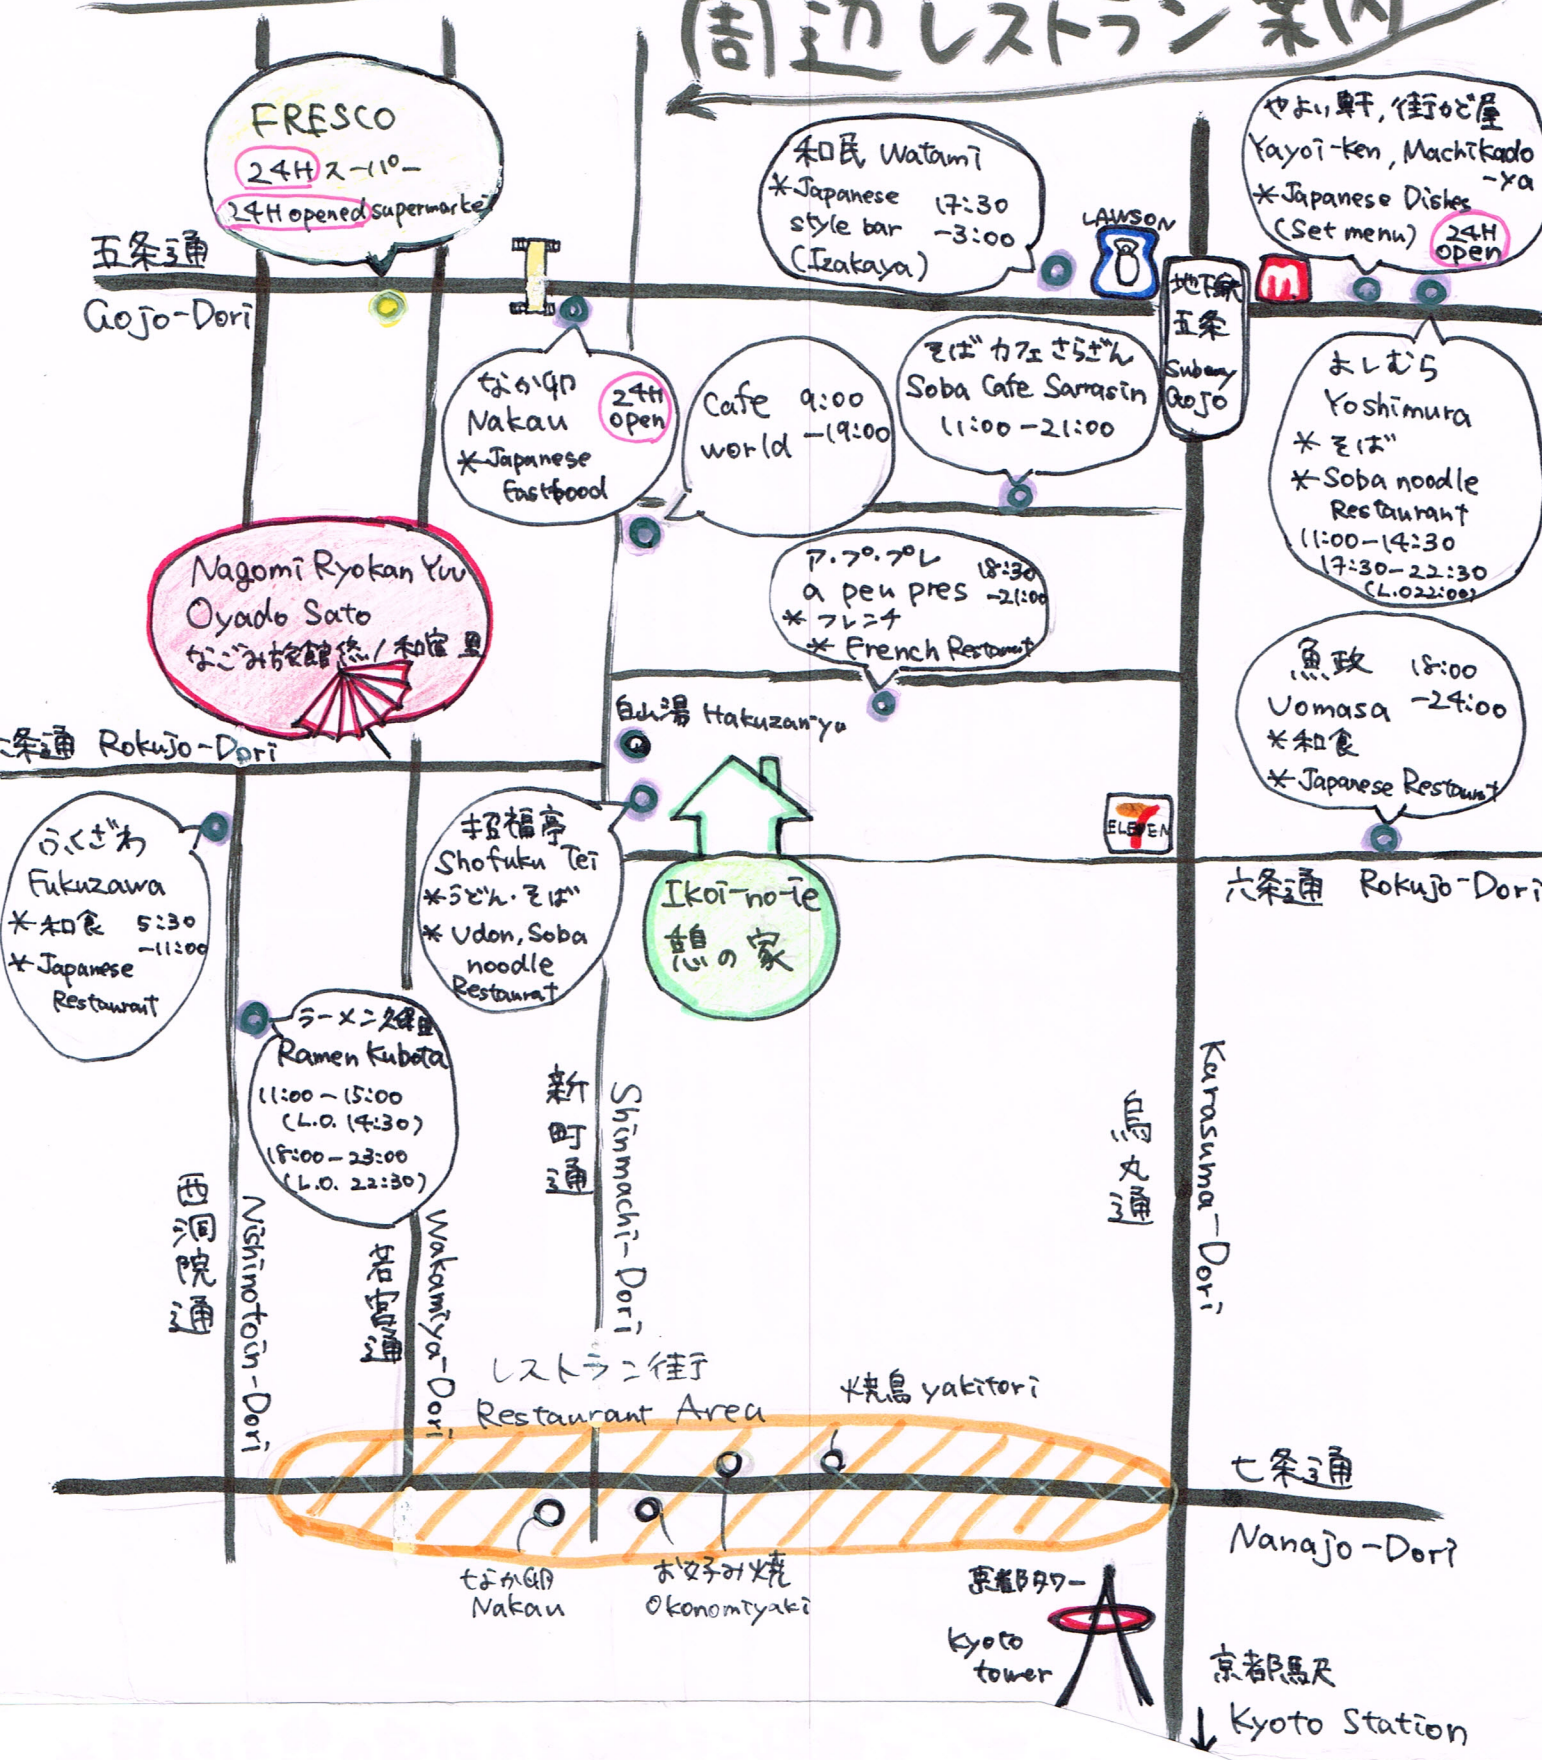 周辺レストラン案内
FRESCO
24H スーパー
24H opened supermarket
和民 Watami
*Japanese
style bar
(Izakaya)
17:30
-3:00
LAWSON
やよい軒,街かど屋
Yayoi-ken, Machikado
-ya
*Japanese Dishes
(Set menu)
24H
open
五条通
Gojo-Dori
地下鉄
五条
Subway
Gojo
なか卯
Nakau
24H
open
*Japanese
fastfood
Cafe 9:00
world -19:00
そばカフェさらざん
Soba Cafe Sarrasin
11:00-21:00
よしむら
Yoshimura
*そば
*Soba noodle
Restaurant
11:00-14:30
17:30-22:30
(L.O22:00)
Nagomi Ryokan Yuu
Oyado Sato
なごみ旅館 悠/和宿 里
ア・プ・プレ
a peu pres
18:30
-21:00
*フレンチ
*French Restaurant
魚政 18:00
Uomasa -24:00
*和食
*Japanese Restaurant
白山湯 Hakuzan-yu
条通 Rokujo-Dori
ふくざわ
Fukuzawa
*和食 5:30
-11:00
*Japanese
Restaurant
招福亭
Shofuku Tei
*うどん・そば
*Udon, Soba
noodle
Restaurat
Ikoi-no-ie
憩の家
7
ELEVEN
六条通 Rokujo-Dori
ラーメン久保田
Ramen Kubota
11:00-15:00
(L.O. 14:30)
18:00-23:00
(L.O. 22:30)
西洞院通
Nishinotoin-Dori
若宮通
Wakamiya-Dori
新町通
Shinmachi-Dori
烏丸通
Karasuma-Dori
レストラン街
Restaurant Area
焼鳥 yakitori
七条通
Nanajo-Dori
なか卯
Nakau
お好み焼
Okonomiyaki
京都タワー
Kyoto
tower
京都駅
Kyoto Station